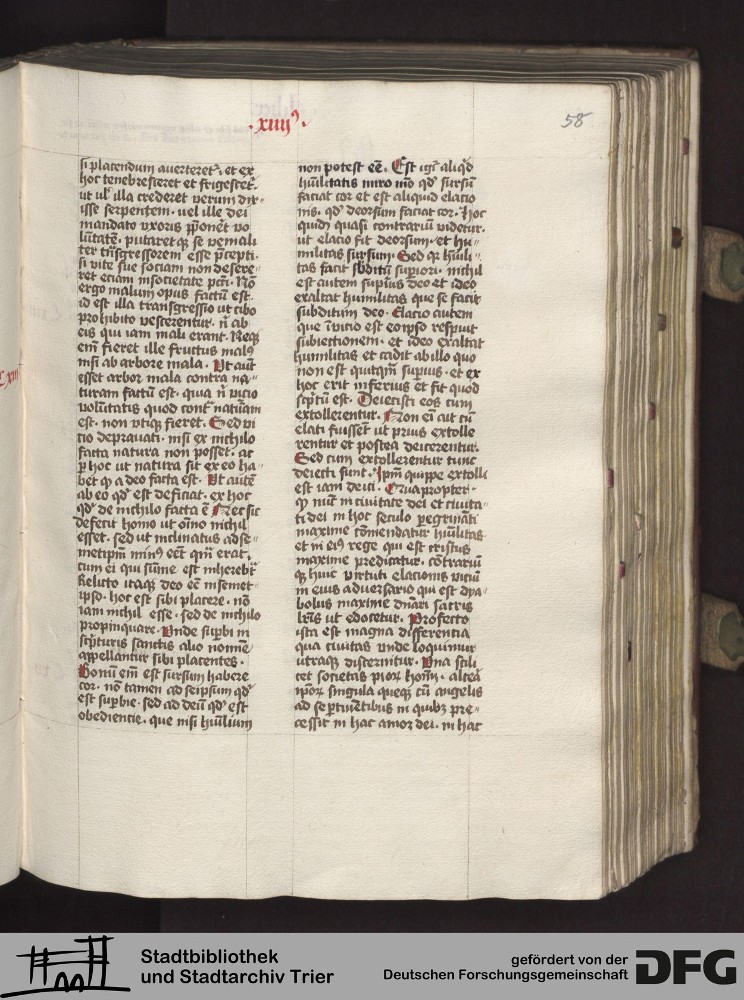 ·xiiij⁹·
58
si placendum auerteret᷑· et ex
hoc tenebresceret et frigesceret᷑·
ut ul᷑ illa crederet verum dix-
isse serpentem· uel ille dei
mandato vxoris p̄ponēt vo
lūtatē· putaretq̨ se veniali
ter trāsgressorem esse p̄cepti·
si vite sue sociam non desere-
ret eciam in societate pctī· Nō
ergo malum opus factū est·
id est illa transgressio ut cibo
prohibito vescerentur· n̄ ab
eis qui iam mali erant· Neq̨
em̄ fieret ille fructus mal⁹
nisi ab arbore mala· Vt aūt
esset arbor mala contra na-
turam factū est· quia n̄ vicio
volūtatis quod cont᷑ naturam
est· non vtiq̨ fieret· Sed vi
cio deprauari· nisi ex nichilo
facta natura non posset· ac
p̱ hoc ut natura sit ex eo ha-
bet q̱ a deo facta est· Vt autē
ab eo qd᷑ est deficiat· ex hoc
qd᷑ de nichilo facta ē Nec sic
defecit homo ut om̄o nichil
esset· sed ut inclinatus ad se-
metip̄m min⁹ eēt qm̄ erat·
cum ei qui sūme est inhereb᷑
Relicto itaq̨ deo eē in semet-
ipso· hoc est sibi placere· nō
iam nichil esse· sed de nichilo
propinquare· Vnde superbi in
sc̱pturis sanctis alio nomine
appellantur sibi placentes·
Bonū em̄ est sursum habere
cor· nō tamen ad seipsum qd᷑
est supbie· sed ad deū qd᷑ est
obediencie· que nisi hūilium
non potest eē· Est igi᷑ aliqd᷑
hūilitatis miro mō qd᷑ sursū
faciat cor et est aliquid elacio
nis· qd᷑ deorsum faciat cor· Hoc
quidē quasi contrariū videtur·
ut elacio sit deorsum· et hu-
militas sursum· Sed q̱ hūili-
tas facit sb̄ditū suꝑiori· nichil
est autem supius deo et ideo
exaltat humilitas que se facit
subditum deo· Elacio autem
que ī vicio est eo ipso respuit
subiectionem· et ideo exaltat
humilitas et cadit ab illo quo
non est quicq̄m supius· et ex
hoc erit inferius et fit quod
sc̱ptū est· Deiecisti eos cum
extollerentur· Non ei᷑ ait cū
elati fuissēt ut prius extolle
rentur et postea deicerentur·
Sed cum extollerentur tunc
deiecti sunt· Ip̄m quippe extolli
est iam deici· Quapropter·
q̱ nūc in ciuitate dei et ciuita-
ti dei in hoc seculo peg̱nāti
maxime cōmendatur hūilitas
et in ei⁹ rege qui est cristus
maxime predicatur· cōtrariū
q̨ huic virtuti elacionis viciū
in eius aduersario qui est dya-
bolus maxime dn̄ari sacris
lr̄is ut edocetur· Profecto
ista est magna differentia
qua ciuitas vnde loquimur
utraq̨ discernitur· Vna scili
cet societas pioꝝ hom̄· altera
īpioꝝ singula queq̨ cū angelis
ad se ptinētibus in quibꝫ pre-
cessit in hac amor dei· in hac
Stadtbibliothek
und Stadtarchiv Trier
gefördert von der
Deutschen Forschungsgemeinschaft
DFG